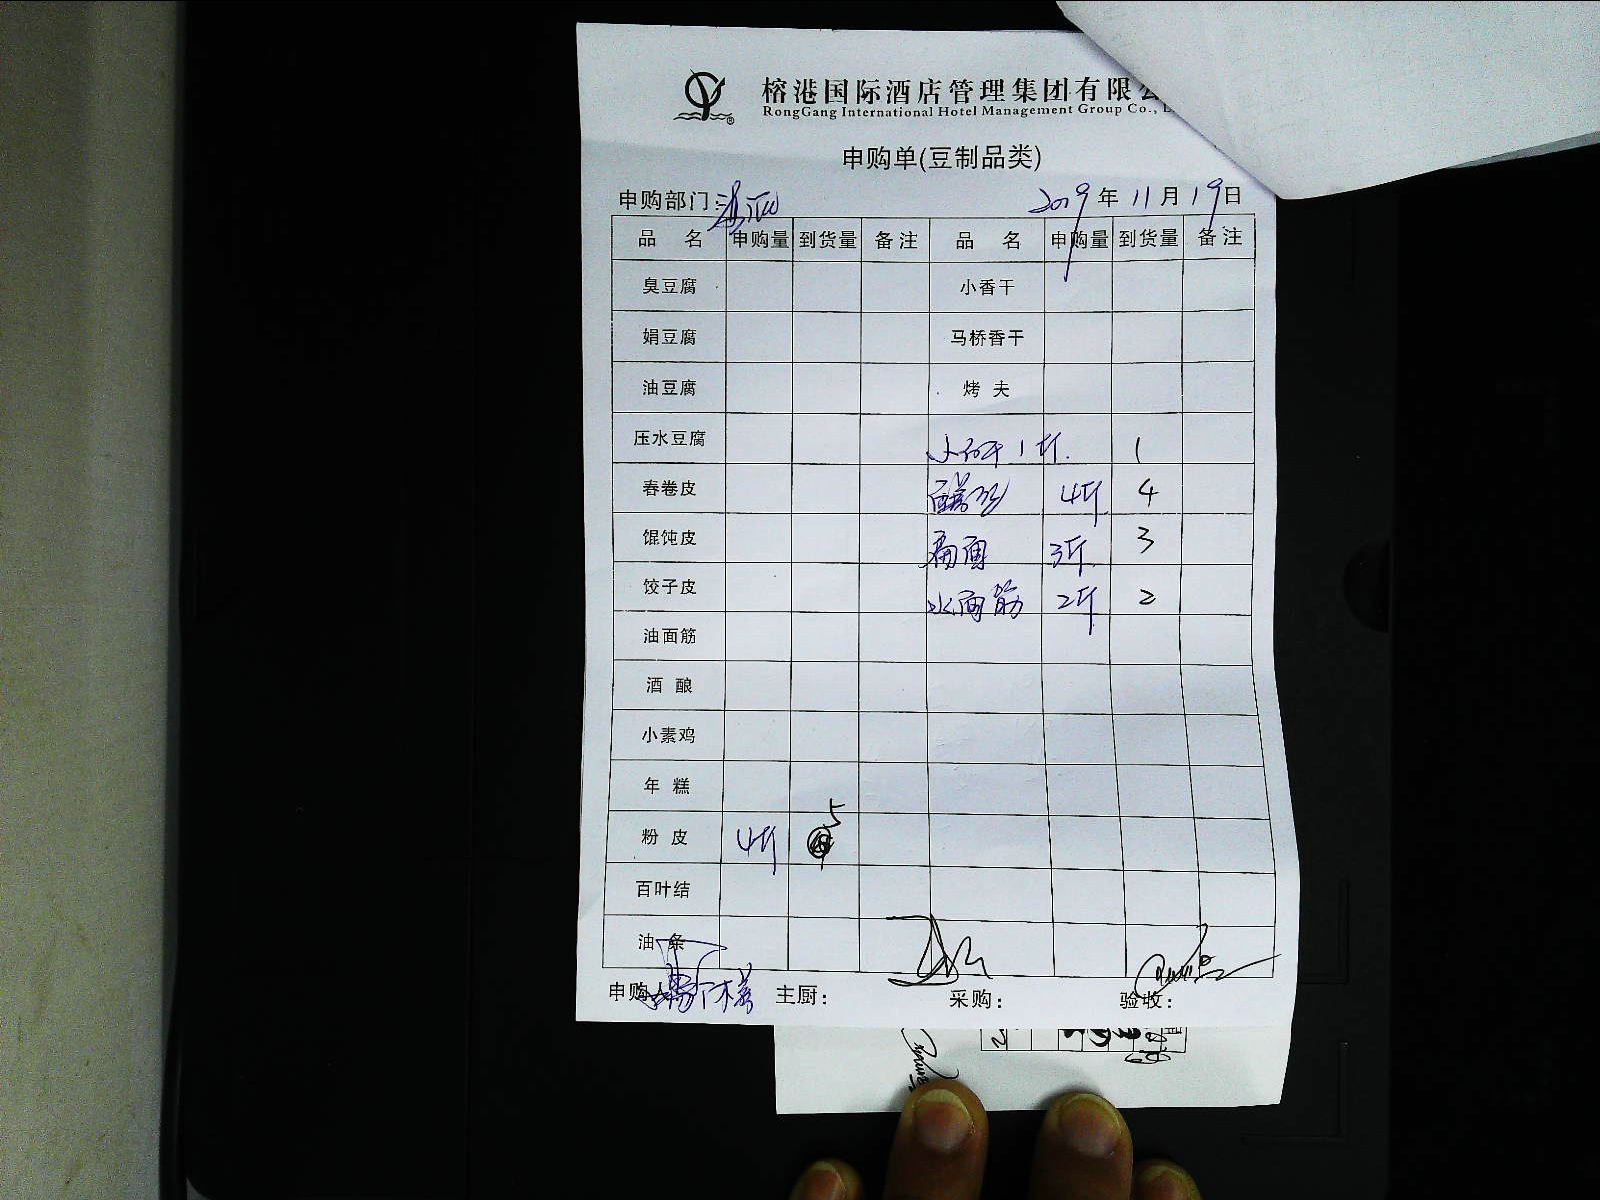 榕港国际酒店管理集团有限
RongGang International Hotel Management Group Co.,
申购单(豆制品类)
申购部门: 2019年11月19日
品名 申购量 到货量 备注 品名 申购量 到货量 备注
臭豆腐 小香干
娟豆腐 马桥香干
油豆腐 烤夫
压水豆腐 1斤. 1
春卷皮 4斤 4
馄饨皮 扁面 3斤 3
饺子皮 水面筋 2斤 2
油面筋
酒酿
小素鸡
年糕
粉皮 4斤 5
百叶结
油条
申购人 主厨: 采购: 验收: